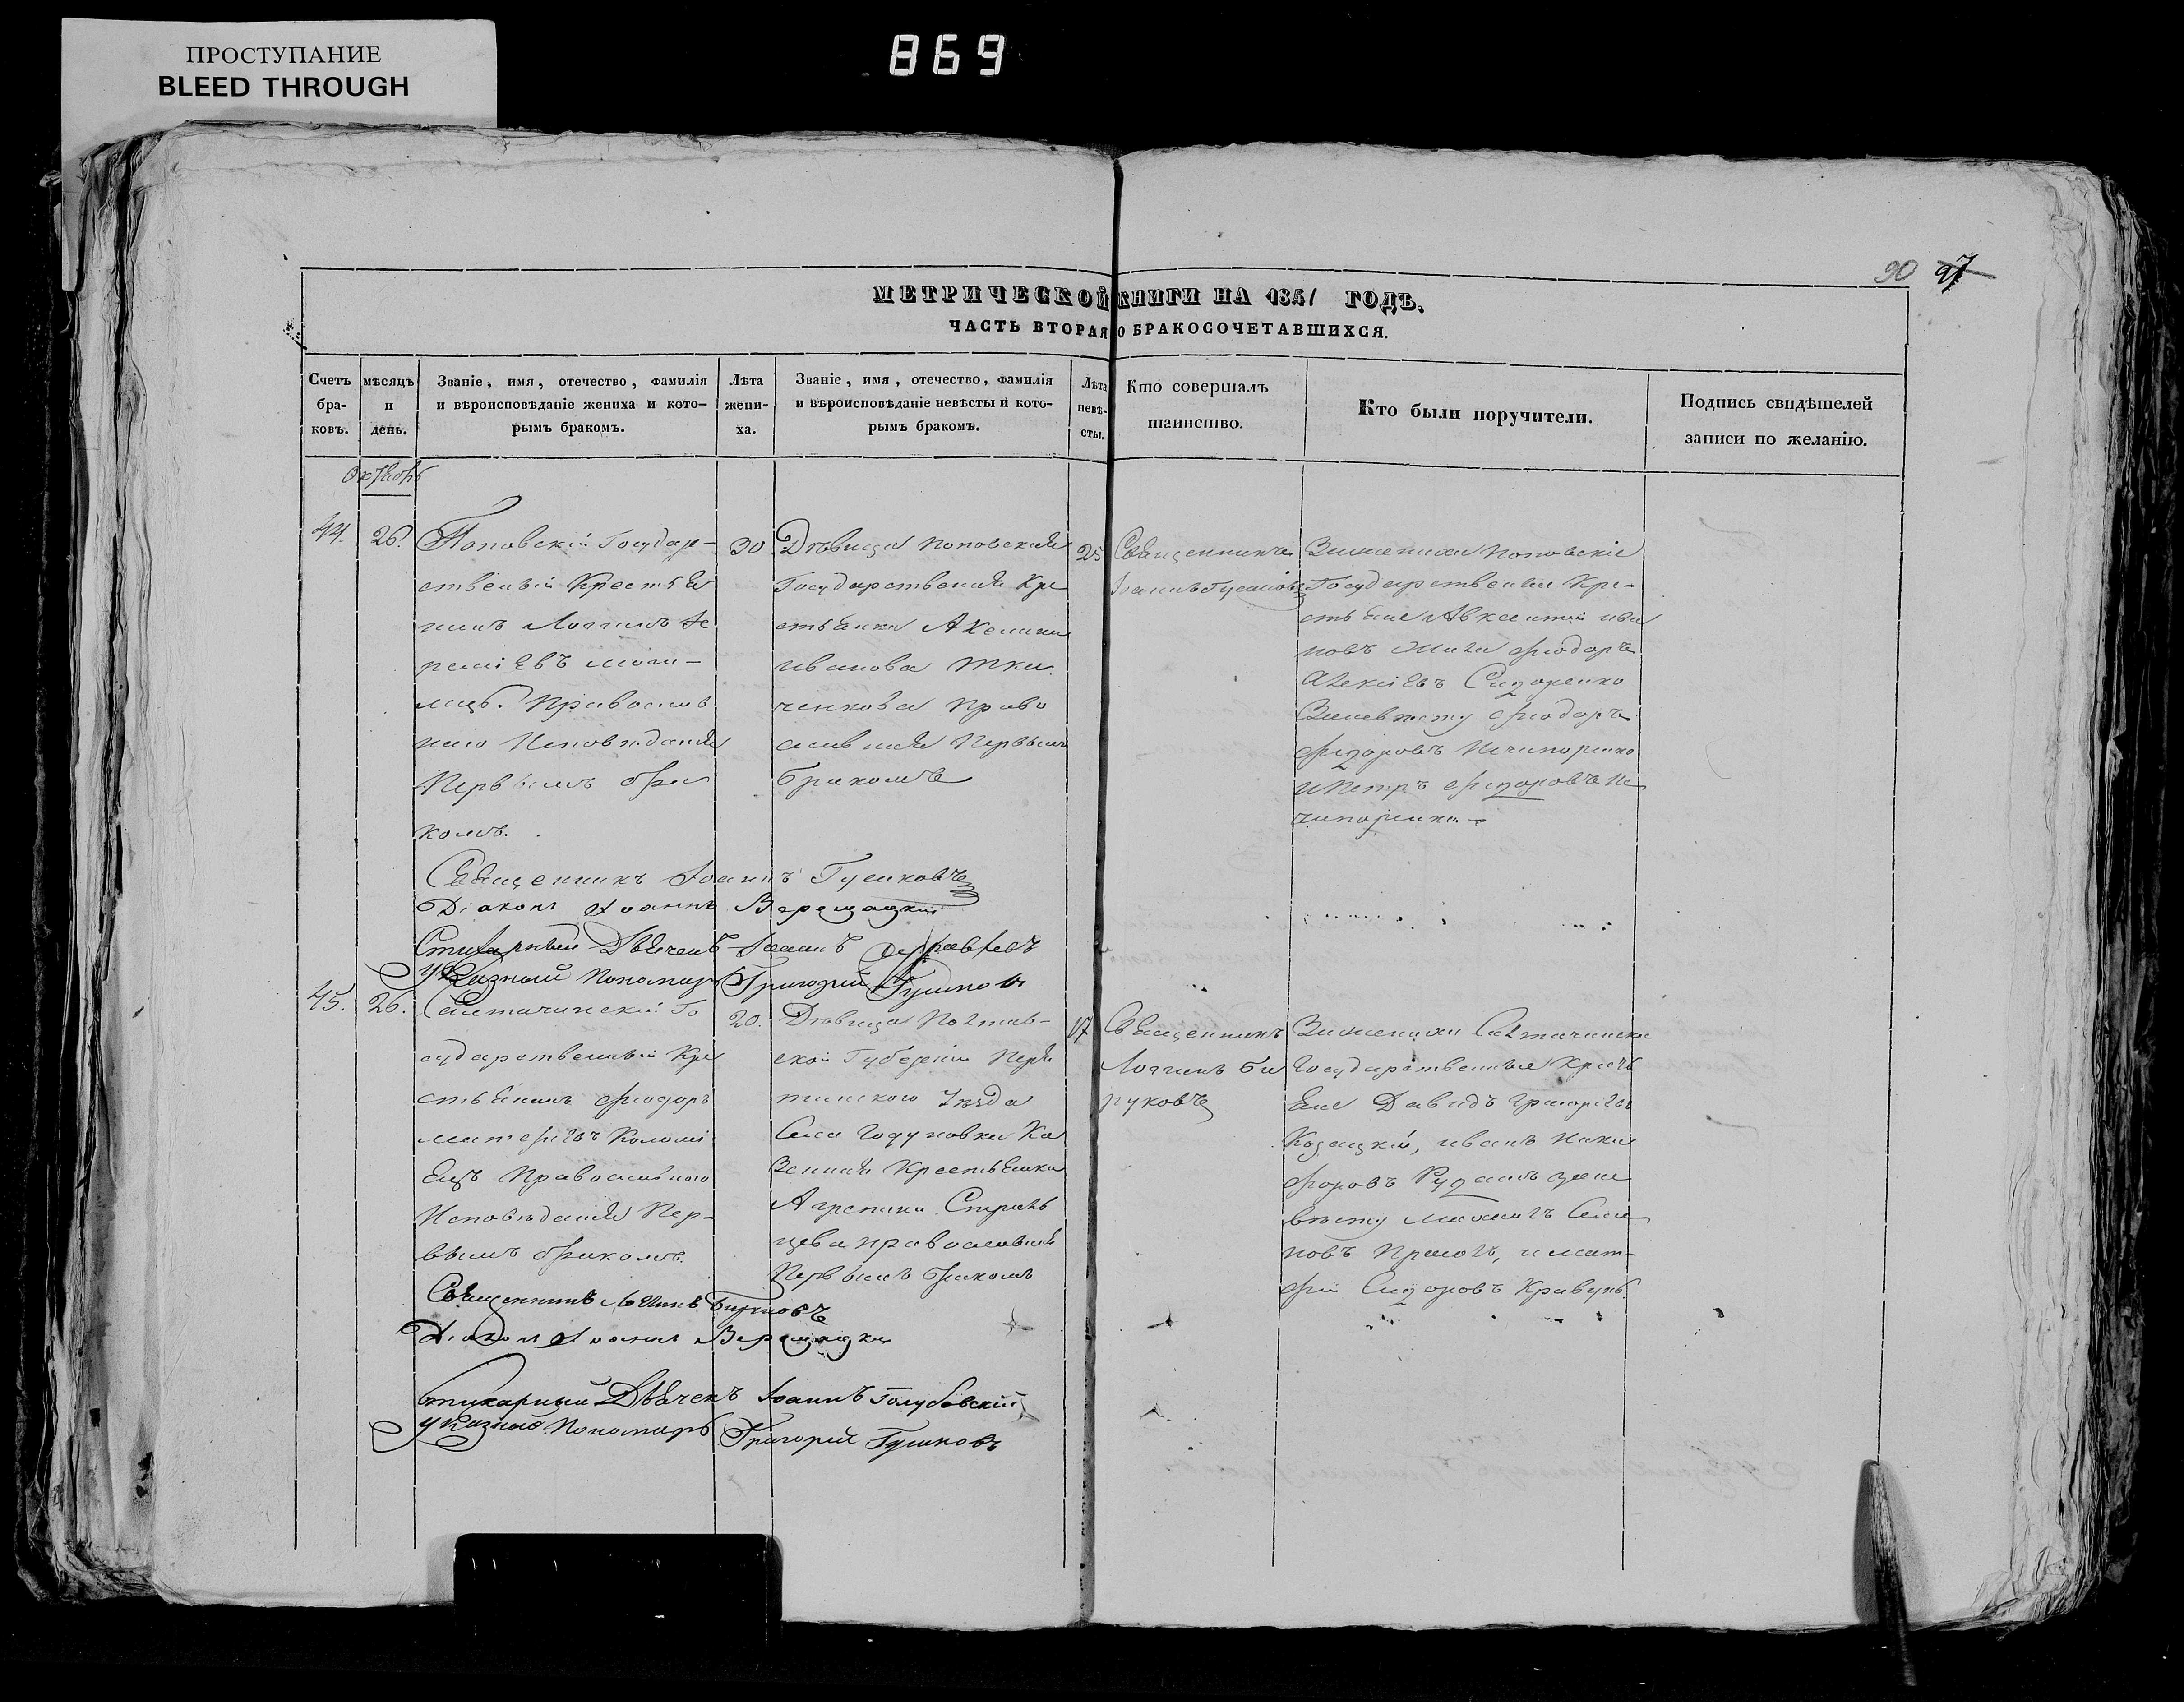 ПРОСТУПАНИЕ
BLEED THROUGH
869
90 97
МЕТРИЧЕСКОЙ КНИГИ НА 1851 ГОДЪ.
ЧАСТЬ ВТОРАЯ О БРАКОСОЧЕТАВШИХСЯ.
Счетъ
бра-
ковъ.
мѣсяцъ
и
день.
Званіе, имя, отечество, фамилія
и вѣроисповѣданіе жениха и кото-
рымъ бракомъ.
Лѣта
жени-
ха.
Званіе, имя, отечество, фамилія
и вѣроисповѣданіе невѣсты и кото-
рымъ бракомъ.
Лѣта
невѣ-
сты.
Кто совершалъ
таинство.
Кто были поручители.
Подпись свидѣтелей
записи по желанію.
Октябрь
44.
26.
Поповскій Государ-
ственый Крестья
нинъ Логгинъ
Православ
наго Исповѣданія
Первымъ бра
комъ.
30
Дѣвица Поповская
Государственая Кре
стьянка Ксения
Иванова Тка
ченкова Право
славная Первымъ
бракомъ
25
Священникъ
Іоаннъ Гусаковъ
За жениха Поповскіе
Государственые Кре-
стьяне Авксентій Ива
новъ Фіодоръ
Алексіевъ Сидоренко
За невѣсту Фіодоръ
Ничипоренко
и Петръ Ни
чипоренко.
Священникъ Іоаннъ Гусаковъ
Діаконъ Іоаннъ Верещацкій
Стихарный Дьячекъ Іоаннъ
Указный Пономарь Григорій
45.
26.
Салтачинскій Го
сударственный Кре
стьянинъ Фіодоръ
Коломі
Ецъ Православного
Исповѣданія Пер-
вымъ бракомъ.
20.
Дѣвица Полтав-
ской Губерніи
Уѣзда
Села Ка
Зенная Крестьянка
Агрепина
цева Православная
Первымъ бракомъ
17
Священникъ
Логгинъ Би
руковъ
За жениха Салтачинскіе
Государственные Кресть
Яне Давидъ Григоріевъ
Козацкій, Иванъ Ники
форовъ за не
вѣсту Михаилъ Семе
новъ и Мат-
фій Сидоровъ Кравунъ.
Священникъ Логинъ Бируковъ
Діаконъ Іоаннъ Верещацкій
Стихарный Дьячекъ Іоаннъ Голубовскій
Указный Пономарь Григорій Гусаковъ